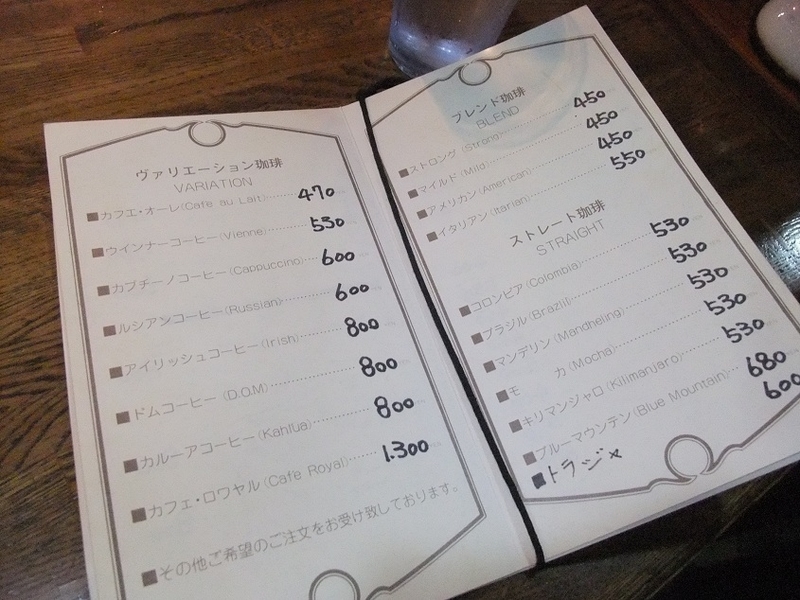 ヴァリエーション珈琲
VARIATION
■カフェ・オーレ(Cafe au Lait) 470
■ウインナーコーヒー(Vienne) 530
■カプチーノコーヒー(Cappuccino) 600
■ルシアンコーヒー(Russian) 600
■アイリッシュコーヒー(Irish) 800
■ドムコーヒー(D.O.M) 800
■カルーアコーヒー(Kahlua) 800
■カフェ・ロワヤル(Cafe Royal) 1.300
■その他ご希望のご注文をお受け致しております。
ブレンド珈琲
BLEND
■ストロング(Strong) 450
■マイルド(Mild) 450
■アメリカン(American) 450
■イタリアン(Itarian) 550
ストレート珈琲
STRAIGHT
■コロンビア(Colombia) 530
■ブラジル(Brazil) 530
■マンデリン(Mandheling) 530
■モ カ(Mocha) 530
■キリマンジャロ(Kilimanjaro) 530
■ブルーマウンテン(Blue Mountain) 680
■トラジャ 600